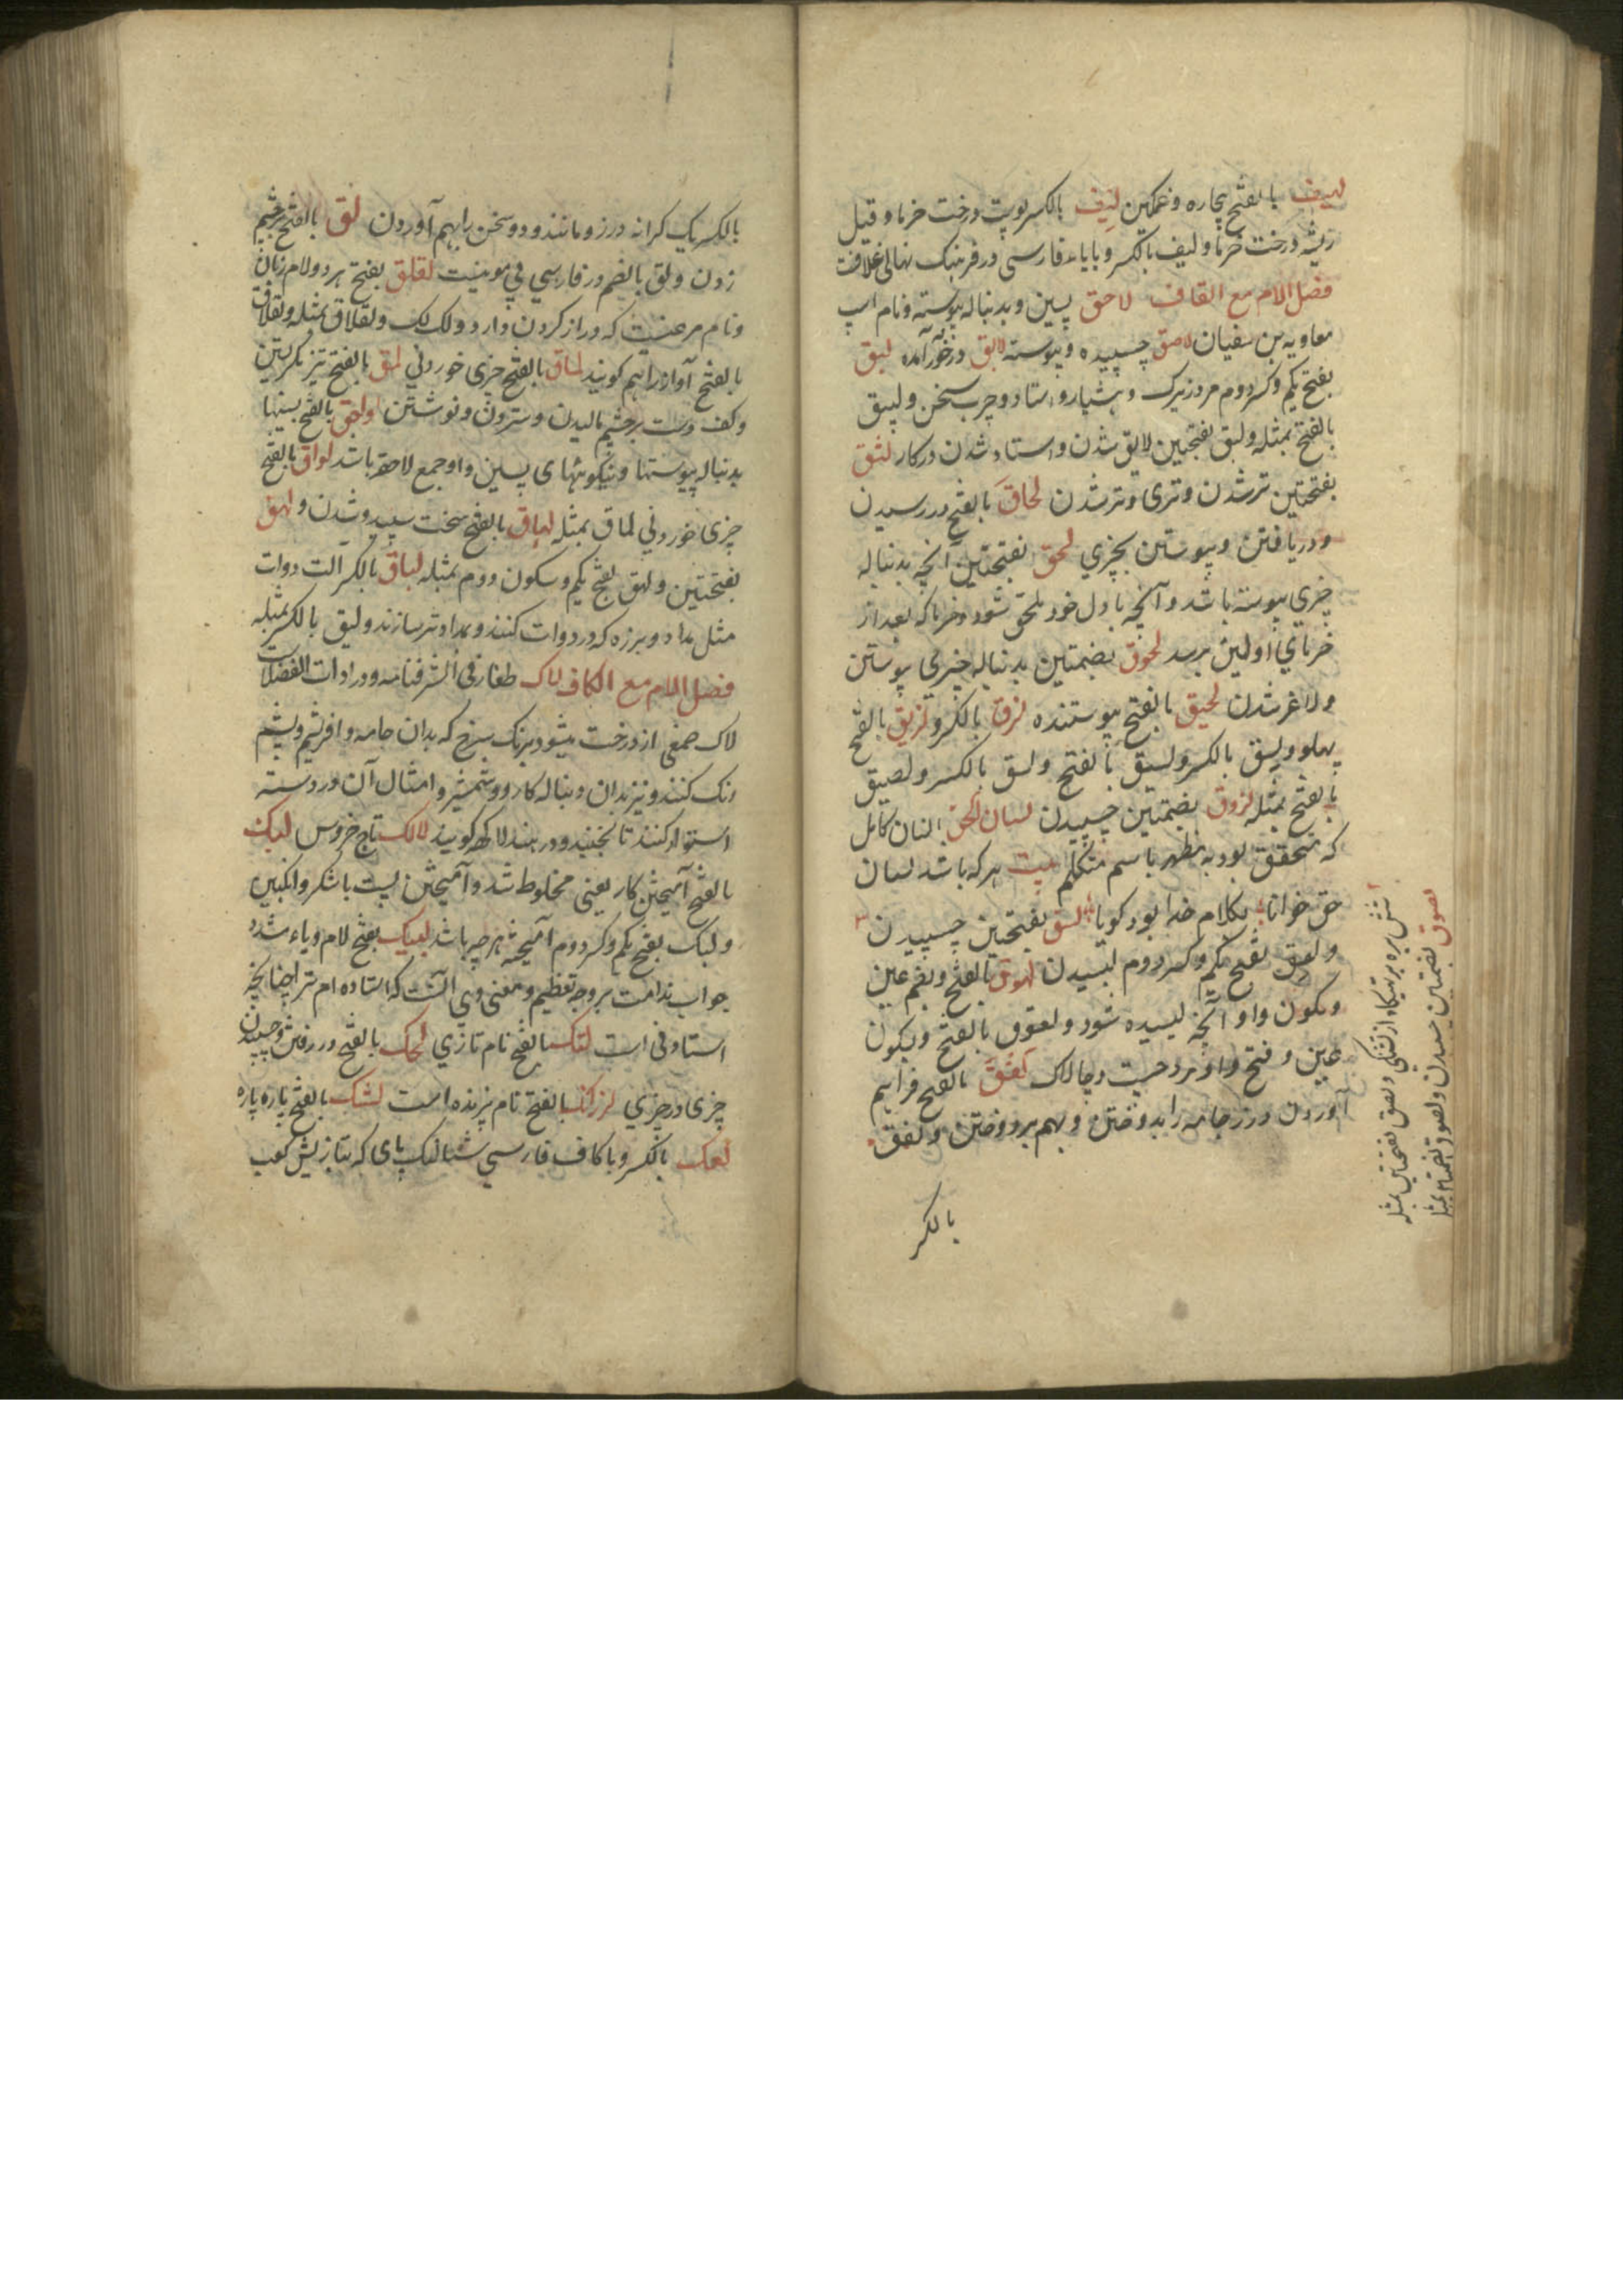 لهیف بالفتح بیچاره و غمگین لیف بالکسر پوست درخت خرما و قیل
ریشه درخت خرما و لیف بالکسر و بایاء فارسی در فرهنگ نهالی غلافت
فصل اللام مع القاف لاحق پسین و بدنباله پیوسته و نام اسپ
معاویه بن سفیان لاصق چسپیده و پیوسته لایق درخور آمده لبق
بفتح یکم و کسر دوم مرد زیرک و هشیار و استاد و چرب سخن و لبیق
بالفتح بمثله و لبق بفتحتین لایق شدن و استاد شدن در کار لثق
بفتحتین تر شدن و تری و تر شدن لحاق بالفتح در رسیدن
و دریافتن و پیوستن بچیزی لحق بفتحتین آنچه بدنباله
چیزی پیوسته باشد و آنچه باول خود ملحق شود و خرما که بعد از
خرمای اولین برسد لحوق بضمتین بدنباله چیزی پیوستن
و لاغر شدن لحیق بالفتح پیوستنده لزق بالکسر و لزیق بالفتح
پهلو و لسق بالکسر و لسیق بالفتح و لسق بالکسر و لصیق
بالفتح بمثله لزوق بضمتین چسپیدن لسان الحق انسان کامل
که متحقق بود به مظهر باسم متکلم بیت هر که باشد لسان
حق خوانا بکلام خدا بود گویا لسق بفتحتین چسپیدن
و لعق بفتح یکم و کسر دوم لیسیدن لعوق بالفتح و بضم عین
و سکون واو آنچه لیسیده شود و لعوق بالفتح و سکون
عین و فتح واو مرد چست و چالاک لفق بالفتح فراهم
آوردن درز جامه را بدوختن و بهم بردوختن و لفق
بالکسر
شش بره بر تهیگاه از تشنگی و لصق بفتحتین بمثله
لصوق بضمتین چسپیدن و لصوق بضمتین بمثله
بالکسر یک کرانه درز و مانند و دو سخن را بهم آوردن لق بالفتح بر چشم
زدن و لق بالضم در فارسی بی موییست لقلق بفتح هر دو لام زبان
و نام مرغیست که دراز گردن دارد و لک لک و لقلاق بمثله و لقلاق
بالفتح آواز را هم گویند لماق بالفتح چیزی خوردنی لمق بالفتح تیز نگریستن
و کف دست بر چشم مالیدن و ستردن و نوشتن لواحق بالفتح پسینها
بدنباله پیوستها و نیکوییهای پسین و او جمع لاحقه باشد لواق بالفتح
چیزی خوردنی لماق بمثله لهاق بالفتح سخت سپید و شدن و لهق
بفتحتین و لهق بفتح یکم و سکون دوم بمثله لیاق بالکسر الت دوات
مثل مداد و برزه که در دوات کنند و مداد تر سازند و لیق بالکسر بمثله
فصل اللام مع الکاف لاک طغار فی الشرفنامه و در ادات الفضلات
لاک صمغی از درخت میشود برنگ سرخ که بدان جامه و افریشم و پشم
رنگ کنند و نیز بدان دنباله کارد و شمشیر و امثال آن در دسته
استوار کنند تا نجنبد و در هند لاکهه گویند لالک تاج خروس لبک
بالفتح آمیختن کار یعنی مخلوط شد و آمیختن پست باشکر و انگبین
و لبک بفتح یکم و کسر دوم آمیخته هر چه باشد لبیک بفتح لام و یاء مشدد
جواب ندا مت بر وجه تعظیم و معنی وی آنست که استاده ام ترا چنانچه
استادنی است لتک بالفتح نام تازی لحک بالفتح در رفتن و چسپیدن
چیزی در چیزی لزرک بالفتح نام پرنده است لشک بالفتح پاره پاره
لعک بالکسر و با کاف فارسی شتالنگ پای که بتازیش کعب